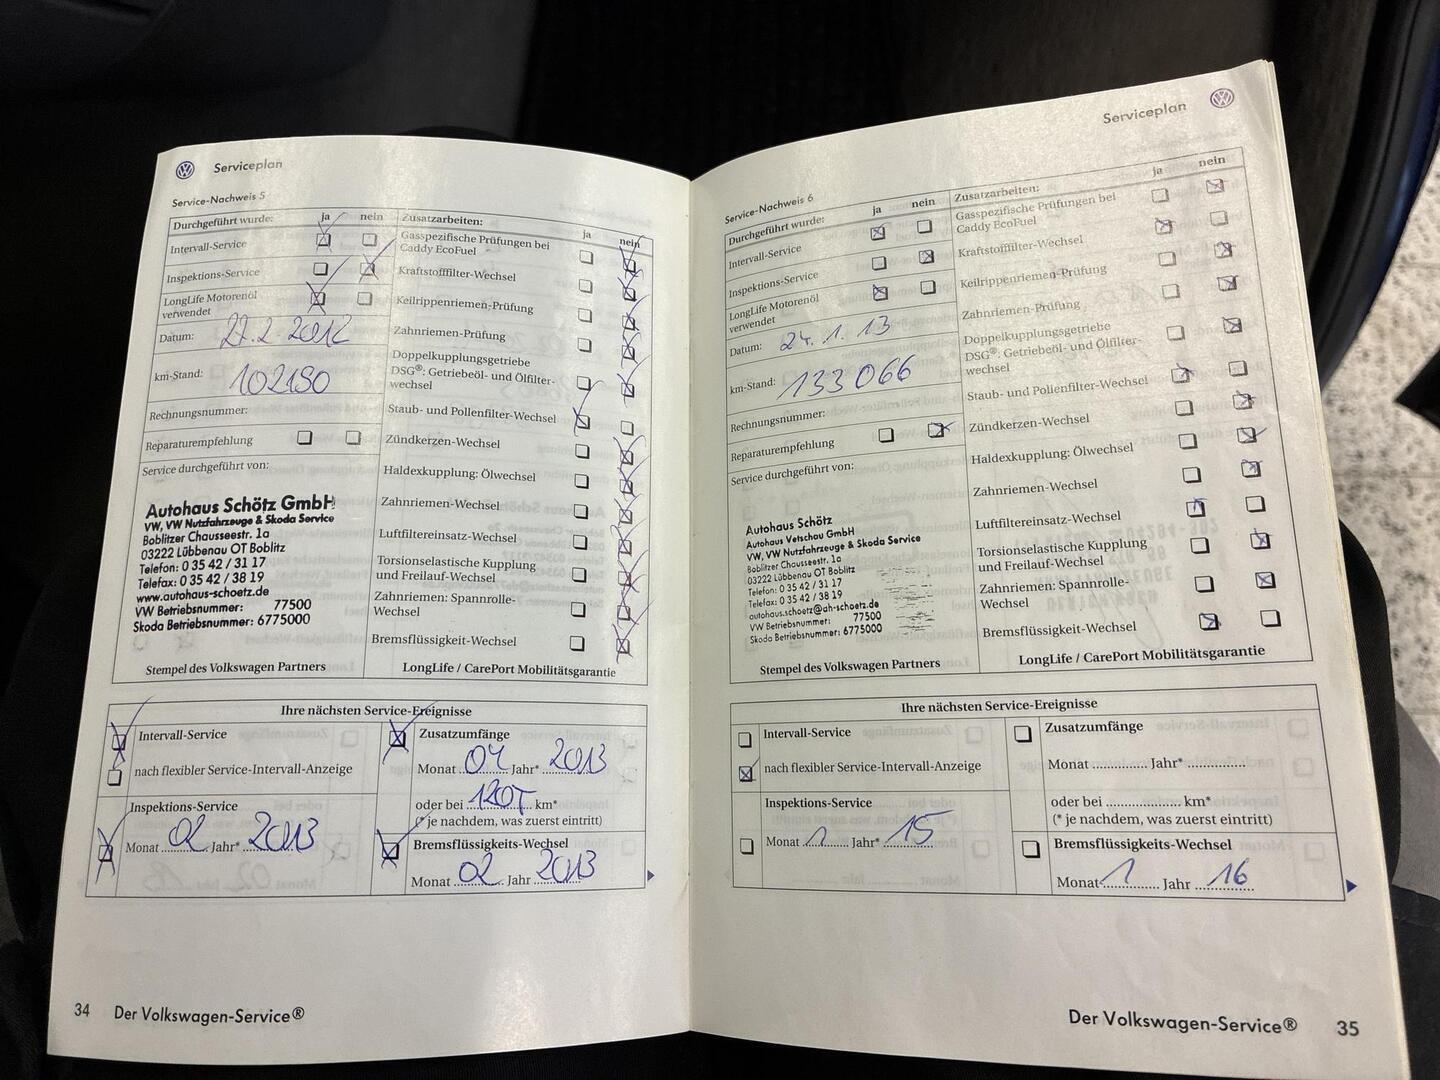 Serviceplan
Service-Nachweis 5
Durchgeführt wurde: ja nein
Intervall-Service
Inspektions-Service
LongLife Motorenöl
verwendet
Datum: 27.2.2012
km-Stand: 102150
Rechnungsnummer:
Reparaturempfehlung
Service durchgeführt von:
Autohaus Schötz GmbH
VW, VW Nutzfahrzeuge & Skoda Service
Boblitzer Chausseestr. 1a
03222 Lübbenau OT Boblitz
Telefon: 0 35 42 / 31 17
Telefax: 0 35 42 / 38 19
www.autohaus-schoetz.de
VW Betriebsnummer: 77500
Skoda Betriebsnummer: 6775000
Stempel des Volkswagen Partners
Zusatzarbeiten: ja nein
Gasspezifische Prüfungen bei
Caddy EcoFuel
Kraftstofffilter-Wechsel
Keilrippenriemen-Prüfung
Zahnriemen-Prüfung
Doppelkupplungsgetriebe
DSG®: Getriebeöl- und Ölfilter-
wechsel
Staub- und Pollenfilter-Wechsel
Zündkerzen-Wechsel
Haldexkupplung: Ölwechsel
Zahnriemen-Wechsel
Luftfiltereinsatz-Wechsel
Torsionselastische Kupplung
und Freilauf-Wechsel
Zahnriemen: Spannrolle-
Wechsel
Bremsflüssigkeit-Wechsel
LongLife / CarePort Mobilitätsgarantie
Ihre nächsten Service-Ereignisse
Intervall-Service
nach flexibler Service-Intervall-Anzeige
Inspektions-Service
Monat 02 Jahr* 2013
Zusatzumfänge
Monat 04 Jahr* 2013
oder bei 120T km*
(* je nachdem, was zuerst eintritt)
Bremsflüssigkeits-Wechsel
Monat 02 Jahr 2013
34 Der Volkswagen-Service®
Serviceplan
Service-Nachweis 6
Durchgeführt wurde: ja nein
Intervall-Service
Inspektions-Service
LongLife Motorenöl
verwendet
Datum: 24.1.13
km-Stand: 133066
Rechnungsnummer:
Reparaturempfehlung
Service durchgeführt von:
Autohaus Schötz
Autohaus Vetschau GmbH
VW, VW Nutzfahrzeuge & Skoda Service
Boblitzer Chausseestr. 1a
03222 Lübbenau OT Boblitz
Telefon: 0 35 42 / 31 17
Telefax: 0 35 42 / 38 19
autohaus.schoetz@ah-schoetz.de
VW Betriebsnummer: 77500
Skoda Betriebsnummer: 6775000
Stempel des Volkswagen Partners
Zusatzarbeiten: ja nein
Gasspezifische Prüfungen bei
Caddy EcoFuel
Kraftstofffilter-Wechsel
Keilrippenriemen-Prüfung
Zahnriemen-Prüfung
Doppelkupplungsgetriebe
DSG®: Getriebeöl- und Ölfilter-
wechsel
Staub- und Pollenfilter-Wechsel
Zündkerzen-Wechsel
Haldexkupplung: Ölwechsel
Zahnriemen-Wechsel
Luftfiltereinsatz-Wechsel
Torsionselastische Kupplung
und Freilauf-Wechsel
Zahnriemen: Spannrolle-
Wechsel
Bremsflüssigkeit-Wechsel
LongLife / CarePort Mobilitätsgarantie
Ihre nächsten Service-Ereignisse
Intervall-Service
nach flexibler Service-Intervall-Anzeige
Inspektions-Service
Monat 1 Jahr* 15
Zusatzumfänge
Monat Jahr*
oder bei km*
(* je nachdem, was zuerst eintritt)
Bremsflüssigkeits-Wechsel
Monat 1 Jahr 16
Der Volkswagen-Service® 35